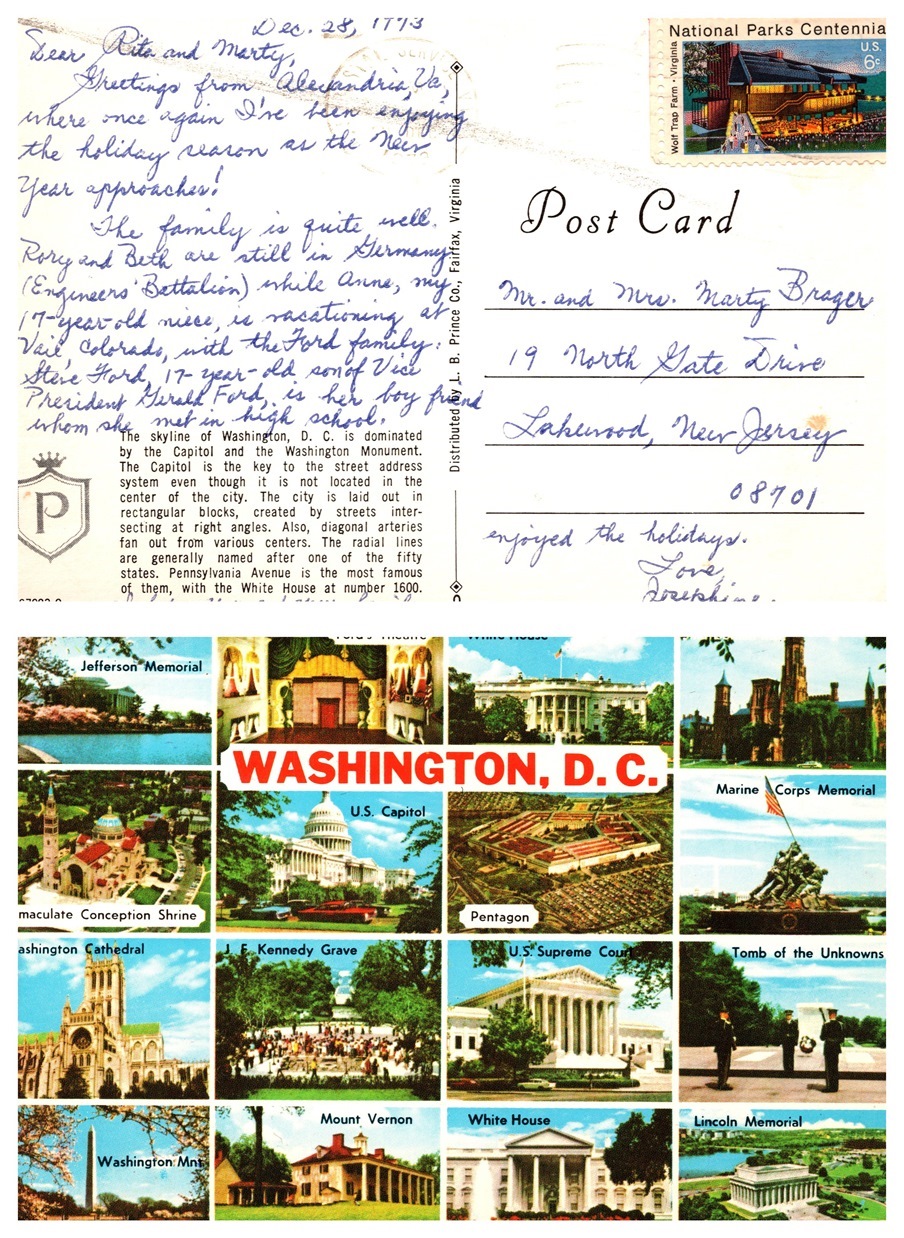 Dec. 28, 1973
Dear Rita and Marty,
Greetings from Alexandria, Va,
where once again I've been enjoying
the holiday season as the New
Year approaches!
The family is quite well.
Rory and Beth are still in Germany
(Engineers' Battalion) while Anne, my
17-year-old niece, is vacationing at
Vail, Colorado, with the Ford family:
Steve Ford, 17-year-old son of Vice
President Gerald Ford, is her boy friend
whom she met in high school.
The skyline of Washington, D. C. is dominated
by the Capitol and the Washington Monument.
The Capitol is the key to the street address
system even though it is not located in the
center of the city. The city is laid out in
rectangular blocks, created by streets inter-
secting at right angles. Also, diagonal arteries
fan out from various centers. The radial lines
are generally named after one of the fifty
states. Pennsylvania Avenue is the most famous
of them, with the White House at number 1600.
P
Distributed by L. B. Prince Co., Fairfax, Virginia
National Parks Centennia
U.S.
6c
Wolf Trap Farm • Virginia
Post Card
Mr. and Mrs. Marty Brager
19 North Gate Drive
Lakewood, New Jersey
08701
enjoyed the holidays.
Love,
Josephine.
Jefferson Memorial
Ford's Theatre
White House
WASHINGTON, D. C.
maculate Conception Shrine
U.S. Capitol
Pentagon
Marine Corps Memorial
ashington Cathedral
J. F. Kennedy Grave
U.S. Supreme Court
Tomb of the Unknowns
Washington Mnt
Mount Vernon
White House
Lincoln Memorial